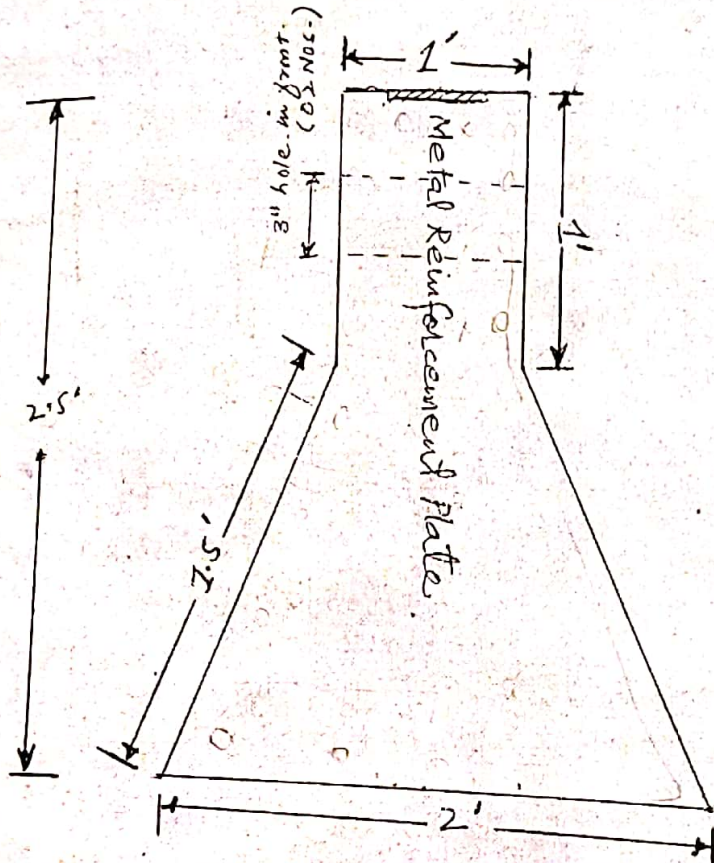 1'
3" hole in front.
(02 NOS.)
Metal Reinforcement Plate.
1'
2.5'
1.5'
2'